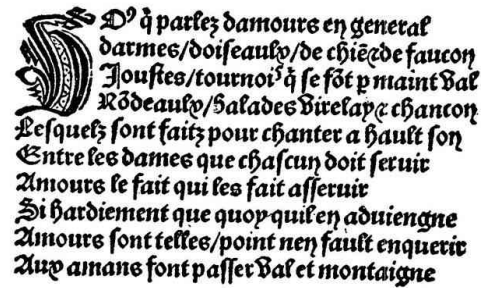 Vo⁹ q̃ parlez damours en general
darmes/doiseaulx/de chiẽ⁊de faucon
Joustes/tournoi⁹ q̃ se fõt p maint val
Rõdeaulx/balades virelay⁊ chancon
Lesquelz sont faitz pour chanter a hault son
Entre les dames que chascun doit seruir
Amours le fait qui les fait asseruir
Si hardiement que quoy quil en aduiengne
Amours sont telles/point nen fault enquerir
Aux amans font passer val et montaigne